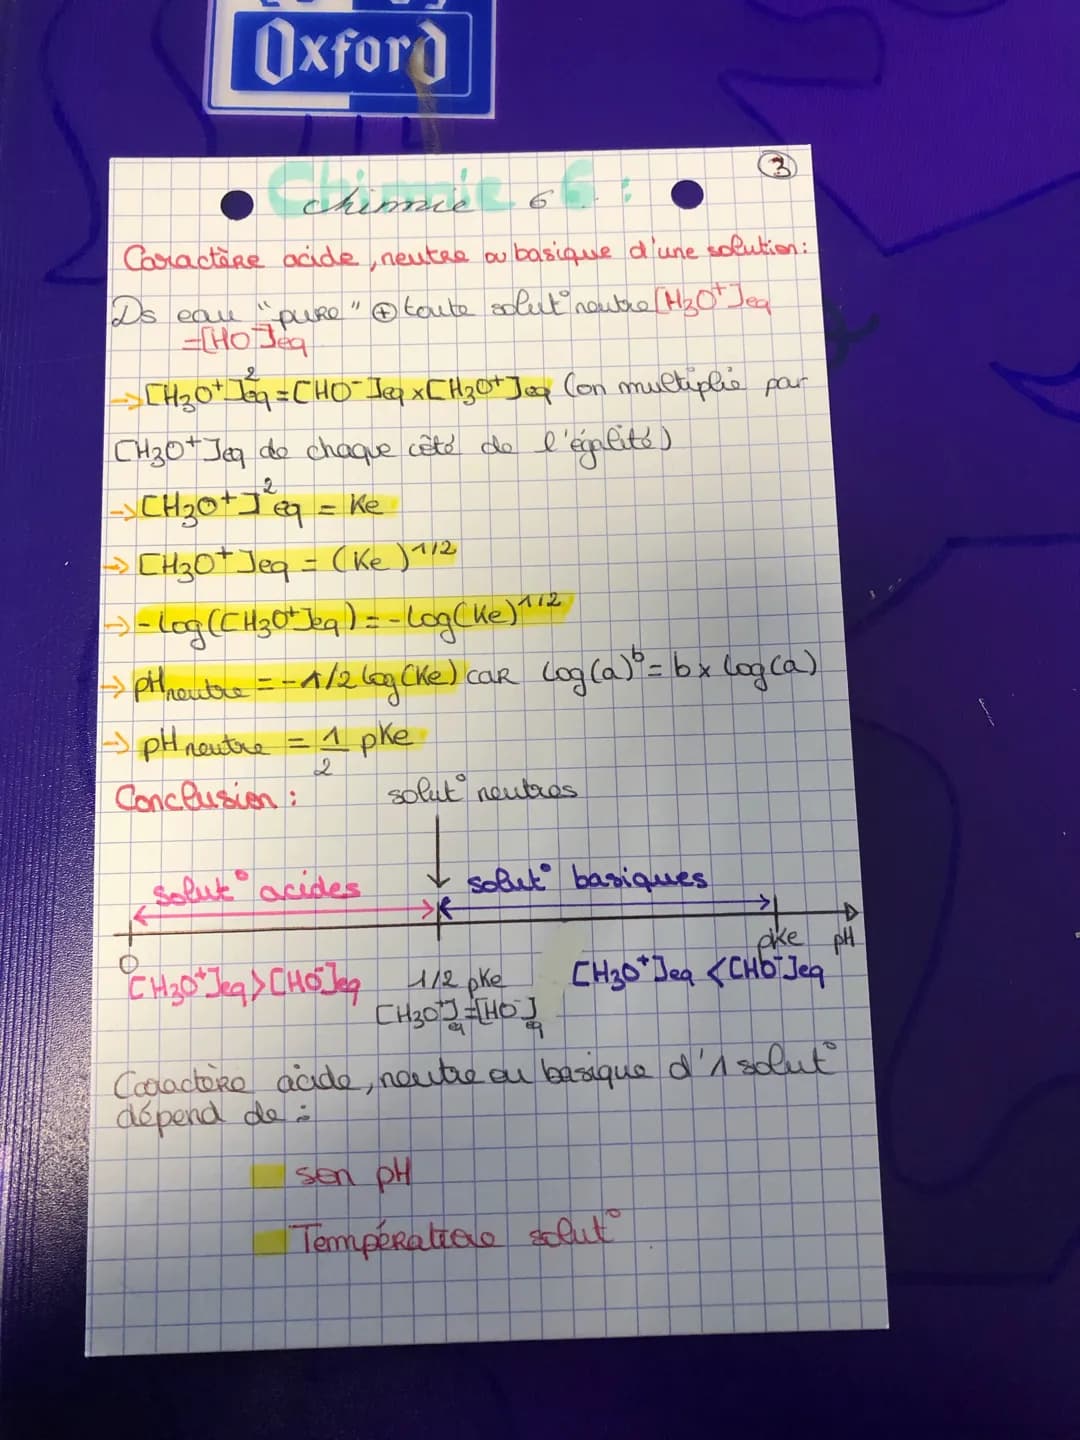 Oxford
③
Chimie 6 :
chimie 6
Caractère acide, neutre ou basique d'une solution :
Ds eau "pure" ⊕ toute solut° neutre [H3O+]eq
=[HO-]eq
→ [H3O+]²eq = [HO-]eq x [H3O+]eq (on multiplie par
[H3O+]eq de chaque côté de l'égalité)
→ [H3O+]²eq = Ke
→ [H3O+]eq = (Ke)^1/2
→ -log([H3O+]eq) = -log(Ke)^1/2
→ pH neutre = -1/2 log(Ke) car log(a)^b = b x log(a)
→ pH neutre = 1/2 pKe
Conclusion : solut° neutres
solut° acides solut° basiques
0 pKe pH
[H3O+]eq > [HO-]eq 1/2 pKe [H3O+]eq < [HO-]eq
[H3O+]eq = [HO-]eq
Caractère acide, neutre ou basique d'1 solut°
dépend de :
son pH
Température solut°